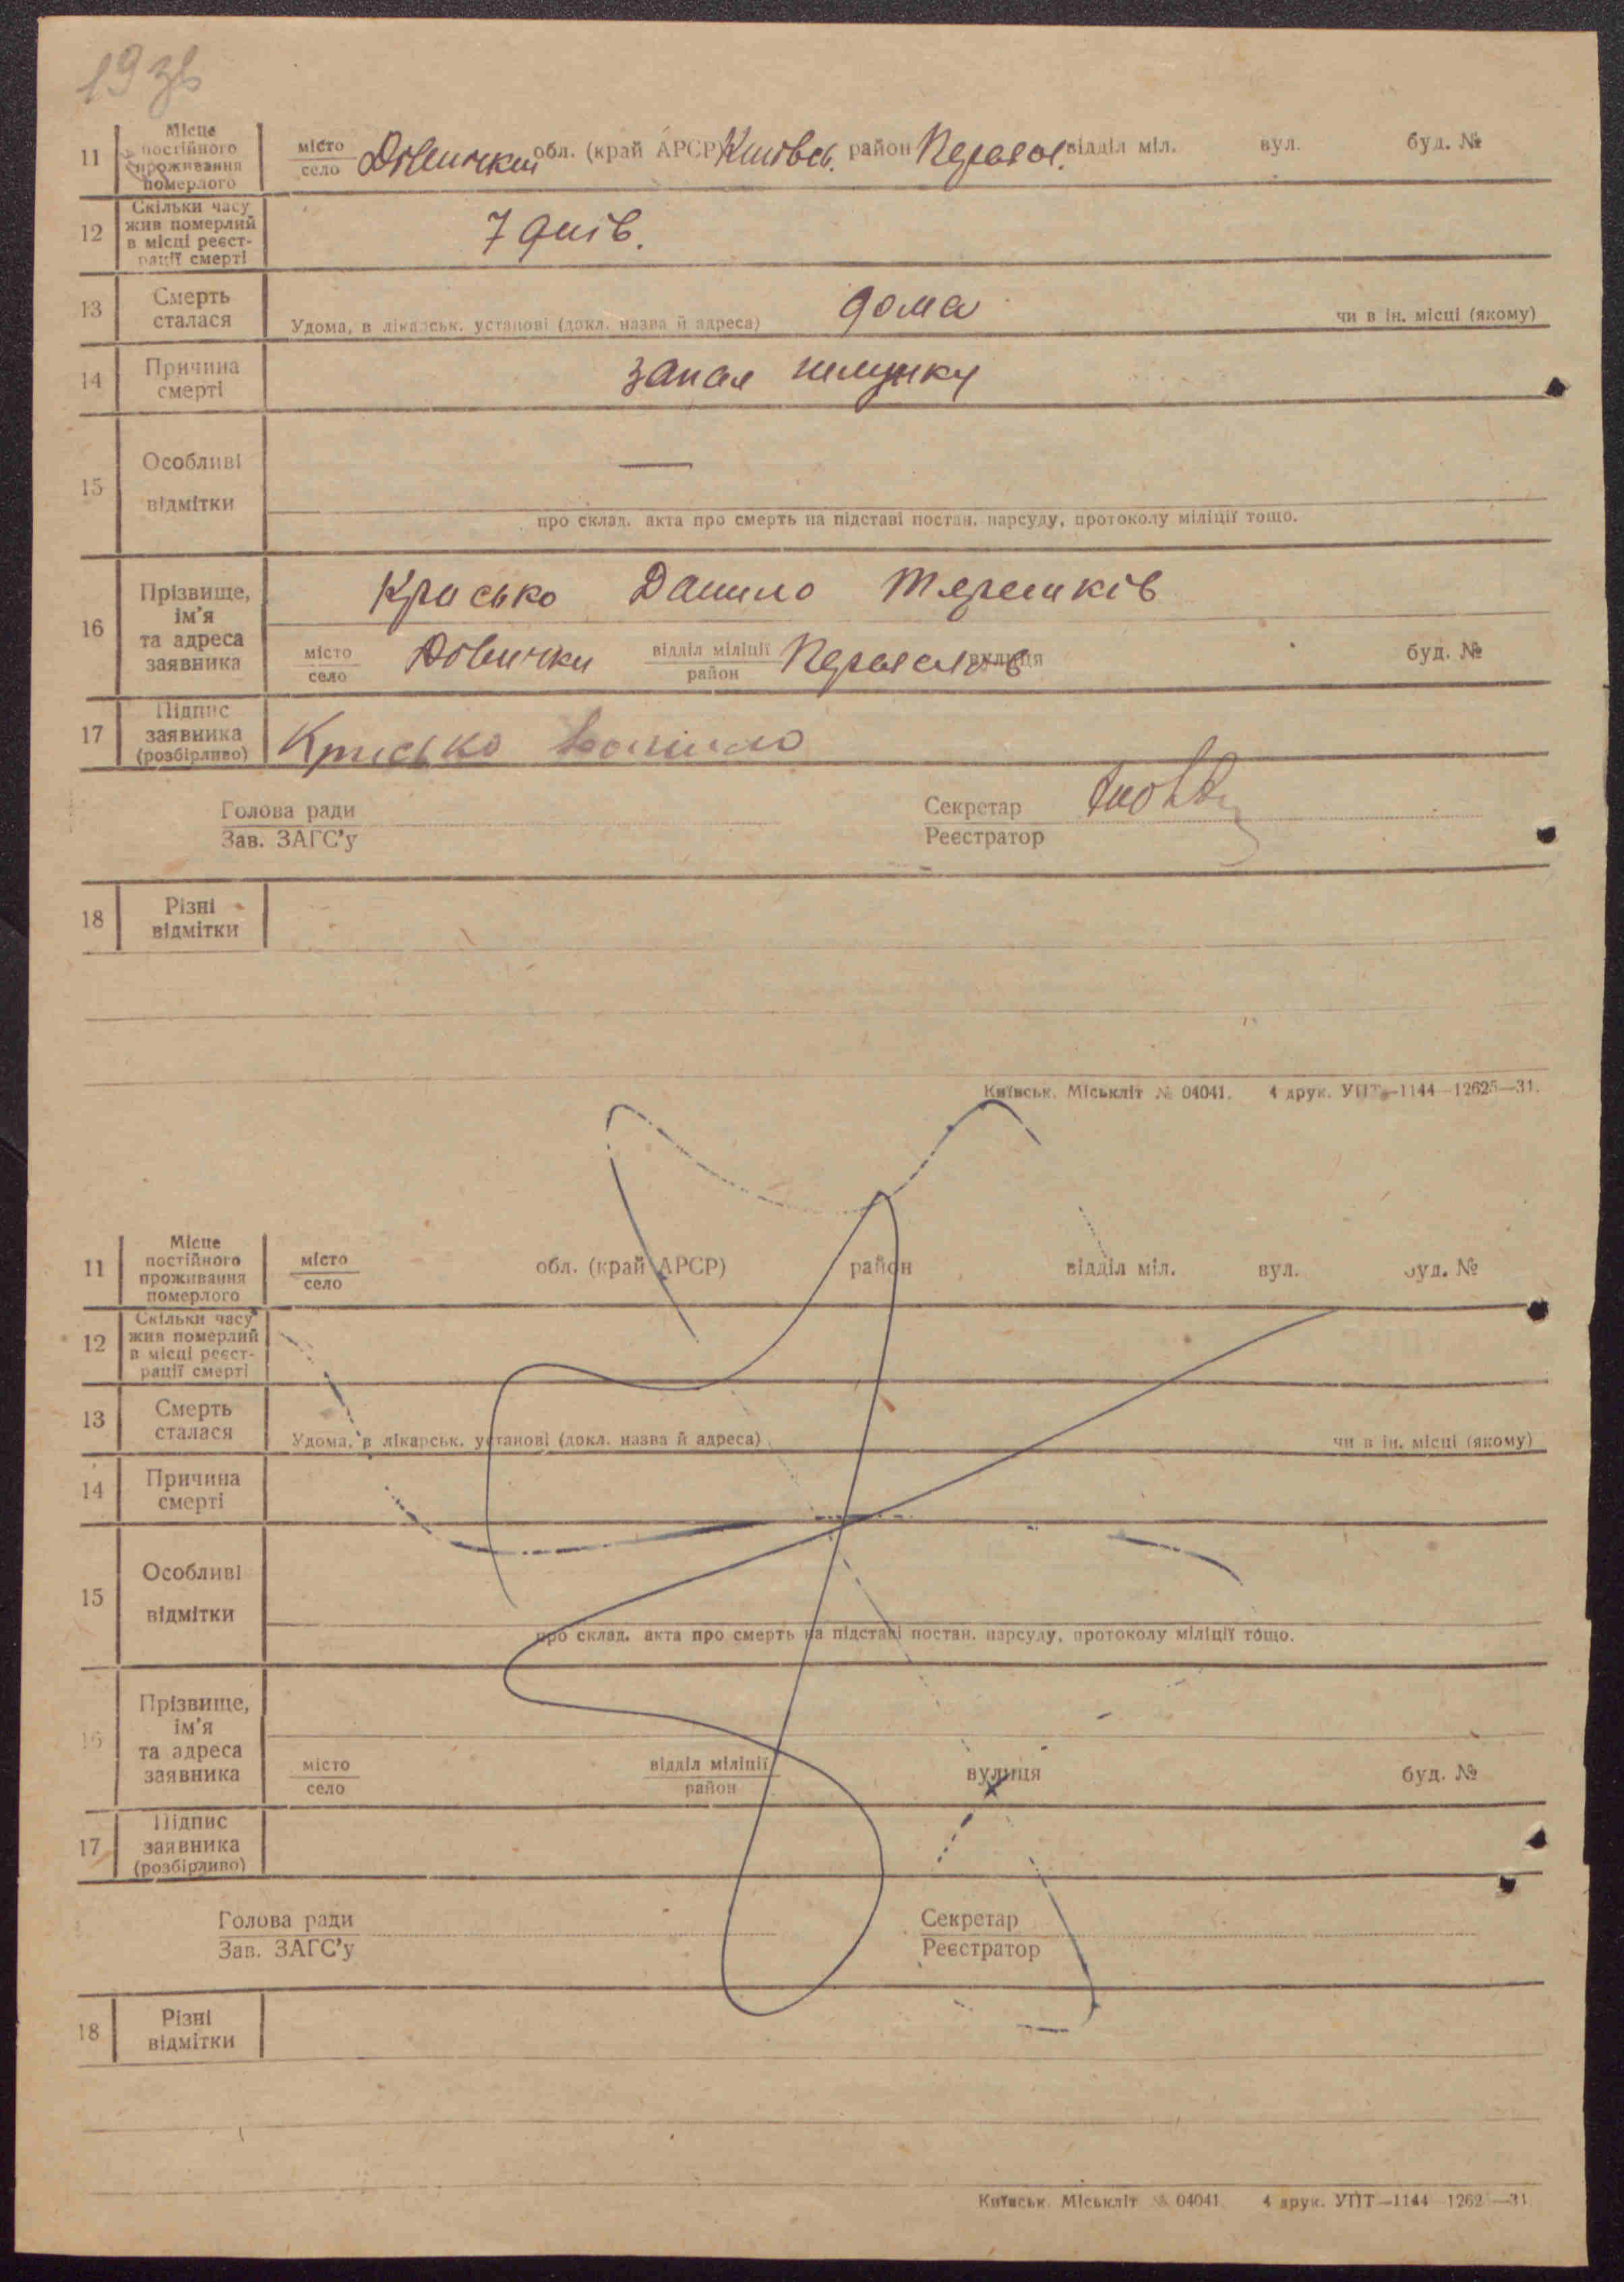 19 зв
11 Місце постійного проживання померлого місто село Дівички обл. (край АРСР) Київськ. район Переясл. відділ міл. вул. буд. №
12 Скільки часу жив померлий в місці реєст-рації смерті 7 днів.
13 Смерть сталася Удома, в лікарськ. установі (докл. назва й адреса) дома чи в ін. місці (якому)
14 Причина смерті запал шлунку
15 Особливі відмітки —
про склад. акта про смерть на підставі постан. нарсуду, протоколу міліції тощо.
16 Прізвище, ім'я та адреса заявника Крисько Данило Терешків
місто село Дівички відділ міліції район Переяслав вулиця буд. №
17 Підпис заявника (розбірливо) Крисько Данило
Голова ради Секретар
Зав. ЗАГС'у Реєстратор
18 Різні відмітки
Київськ. Міськліт № 04041. 4 друк. УПТ—1144—12625—31.
11 Місце постійного проживання померлого місто село обл. (край АРСР) район відділ міл. вул. буд. №
12 Скільки часу жив померлий в місці реєст-рації смерті
13 Смерть сталася Удома, в лікарськ. установі (докл. назва й адреса) чи в ін. місці (якому)
14 Причина смерті
15 Особливі відмітки
про склад. акта про смерть на підставі постан. нарсуду, протоколу міліції тощо.
16 Прізвище, ім'я та адреса заявника
місто село відділ міліції район вулиця буд. №
17 Підпис заявника (розбірливо)
Голова ради Секретар
Зав. ЗАГС'у Реєстратор
18 Різні відмітки
Київськ. Міськліт № 04041. 4 друк. УПТ—1144—1262 —31